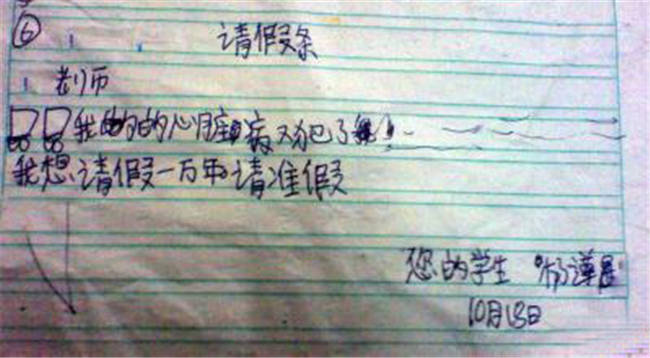 ⑥
请假条
老师
我的的心脏病又犯了
我想请假一万年请准假
您的学生 杨
10月13日